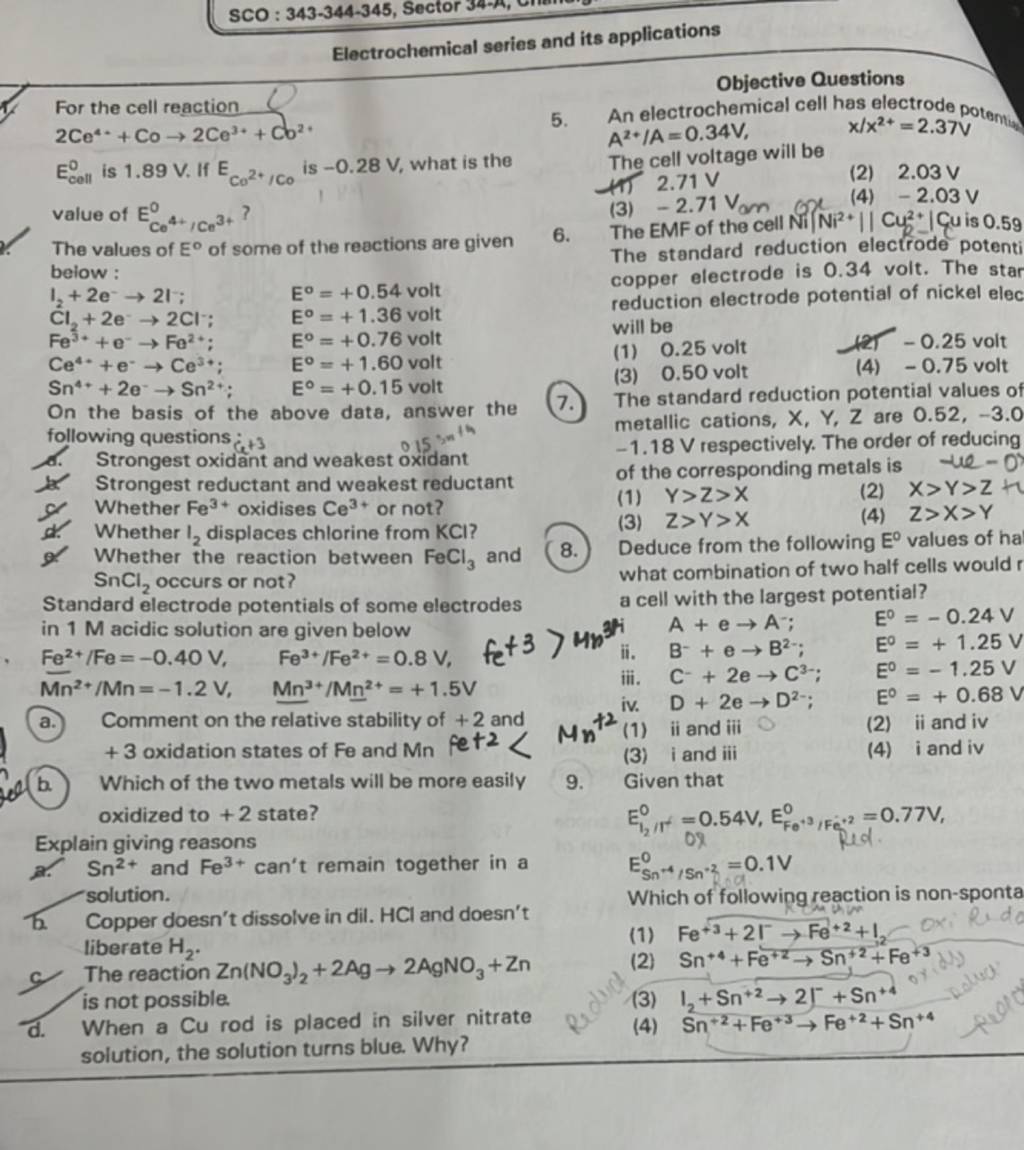 SCO : 343-344-345, Sector 34-A,
Electrochemical series and its applications
For the cell reaction
2Ce⁴⁺ + Co → 2Ce³⁺ + Co²⁺
E⁰cell is 1.89 V. If E Co²⁺/Co is –0.28 V, what is the
value of E⁰ Ce⁴⁺/Ce³⁺ ?
The values of E⁰ of some of the reactions are given
below :
I₂ + 2e⁻ → 2I⁻; E⁰ = +0.54 volt
Cl₂ + 2e⁻ → 2Cl⁻; E⁰ = +1.36 volt
Fe³⁺ + e⁻ → Fe²⁺; E⁰ = +0.76 volt
Ce⁴⁺ + e⁻ → Ce³⁺; E⁰ = +1.60 volt
Sn⁴⁺ + 2e⁻ → Sn²⁺; E⁰ = +0.15 volt
On the basis of the above data, answer the
following questions :
0.15 Sn+4
a. Strongest oxidant and weakest oxidant
b. Strongest reductant and weakest reductant
c. Whether Fe³⁺ oxidises Ce³⁺ or not?
d. Whether I₂ displaces chlorine from KCl?
e. Whether the reaction between FeCl₃ and
SnCl₂ occurs or not?
Standard electrode potentials of some electrodes
in 1 M acidic solution are given below
Fe²⁺/Fe = –0.40 V, Fe³⁺/Fe²⁺ = 0.8 V,
fe+3 > Mn
Mn²⁺/Mn = –1.2 V, Mn³⁺/Mn²⁺ = +1.5V
a. Comment on the relative stability of +2 and
+3 oxidation states of Fe and Mn
fe+2 < Mn+2
b. Which of the two metals will be more easily
oxidized to +2 state?
Explain giving reasons
a. Sn²⁺ and Fe³⁺ can't remain together in a
solution.
b. Copper doesn't dissolve in dil. HCl and doesn't
liberate H₂.
c. The reaction Zn(NO₃)₂ + 2Ag → 2AgNO₃ + Zn
is not possible.
d. When a Cu rod is placed in silver nitrate
solution, the solution turns blue. Why?
Objective Questions
5. An electrochemical cell has electrode potential
A²⁺/A = 0.34V, x/x²⁺ = 2.37V
The cell voltage will be
(1) 2.71 V (2) 2.03 V
(3) – 2.71 V (4) – 2.03 V
6. The EMF of the cell Ni|Ni²⁺||Cu²⁺|Cu is 0.59
The standard reduction electrode potenti
copper electrode is 0.34 volt. The star
reduction electrode potential of nickel elec
will be
(1) 0.25 volt (2) – 0.25 volt
(3) 0.50 volt (4) – 0.75 volt
7. The standard reduction potential values of
metallic cations, X, Y, Z are 0.52, –3.0
–1.18 V respectively. The order of reducing
of the corresponding metals is
(1) Y>Z>X (2) X>Y>Z
(3) Z>Y>X (4) Z>X>Y
8. Deduce from the following E⁰ values of ha
what combination of two half cells would r
a cell with the largest potential?
i. A + e → A⁻; E⁰ = – 0.24 V
ii. B⁻ + e → B²⁻; E⁰ = + 1.25 V
iii. C⁻ + 2e → C³⁻; E⁰ = – 1.25 V
iv. D + 2e → D²⁻; E⁰ = + 0.68 V
(1) ii and iii (2) ii and iv
(3) i and iii (4) i and iv
9. Given that
E⁰ I₂/I⁻ = 0.54V, E⁰ Fe⁺³/Fe⁺² = 0.77V,
ox Red.
E⁰ Sn⁺⁴/Sn⁺² = 0.1V
Which of following reaction is non-sponta
(1) Fe⁺³ + 2I⁻ → Fe⁺² + I₂
(2) Sn⁺⁴ + Fe⁺² → Sn⁺² + Fe⁺³
(3) I₂ + Sn⁺² → 2I⁻ + Sn⁺⁴
(4) Sn⁺² + Fe⁺³ → Fe⁺² + Sn⁺⁴